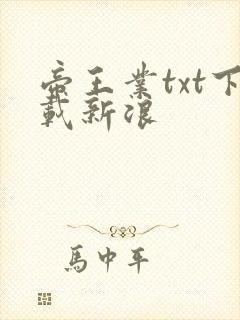 帝王業txt下
載新浪
馬中平